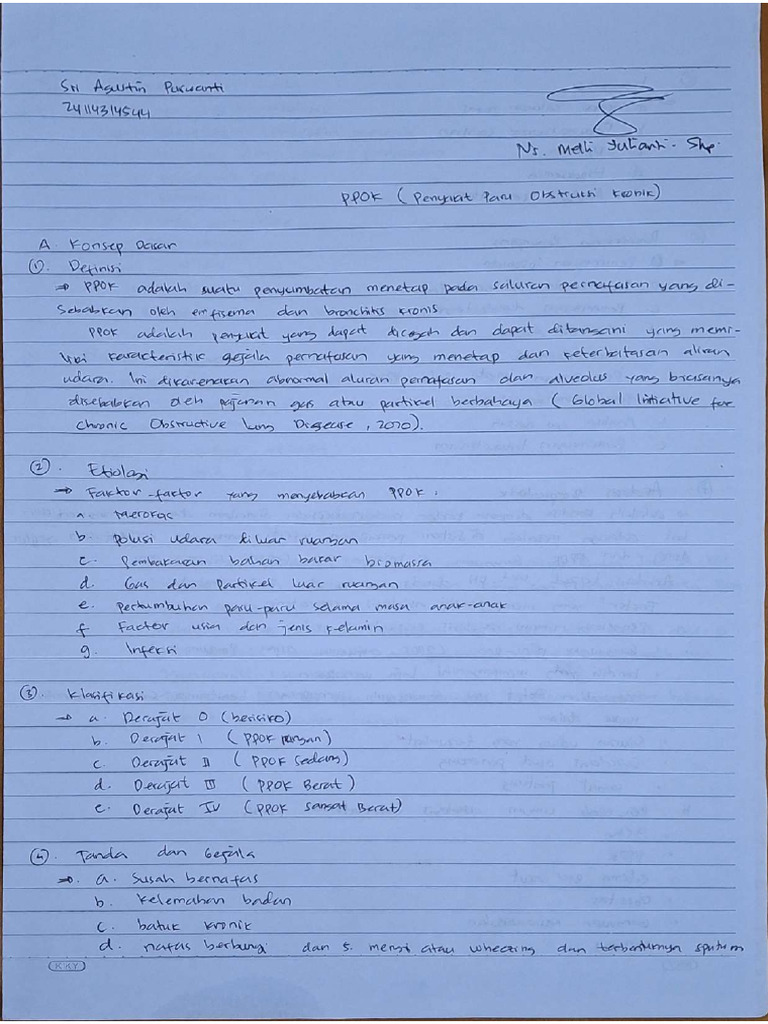 Sri Agustin Purwanti
24114314544
Ns. Melti Yulianti. Skep.
PPOK (Penyakit Paru Obstruksi Kronik)
A. Konsep Dasar
①. Definisi
→ PPOK adalah suatu penyumbatan menetap pada saluran pernafasan yang di-
sebabkan oleh emfisema dan bronchitis kronis
PPOK adalah penyakit yang dapat dicegah dan dapat ditangani yang memi-
liki karakteristik gejala pernafasan yang menetap dan keterbatasan aliran
udara. Ini dikarenakan abnormal aluran pernafasan dan alveolus yang biasanya
disebabkan oleh pajanan gas atau partikel berbahaya (Global Initiative for
Chronic Obstructive Lung Disease, 2020).
②. Etiologi
→ Faktor-faktor yang menyebabkan PPOK :
a. Merokok
b. Polusi udara diluar ruangan
c. Pembakaran bahan bakar biomasa
d. Gas dan Partikel luar ruangan
e. pertumbuhan paru-paru selama masa anak-anak
f. Factor usia dan jenis kelamin
g. Infeksi
③. Klasifikasi
→ a. Derajat 0 (berisiko)
b. Derajat I (PPOK ringan)
c. Derajat II (PPOK Sedang)
d. Derajat III (PPOK Berat)
e. Derajat IV (PPOK Sangat Berat)
④. Tanda dan Gejala
→ a. Susah bernafas
b. Kelemahan badan
c. batuk kronik
d. nafas berbunyi dan s. mengi atau wheezing dan terbentuknya sputum
KKY